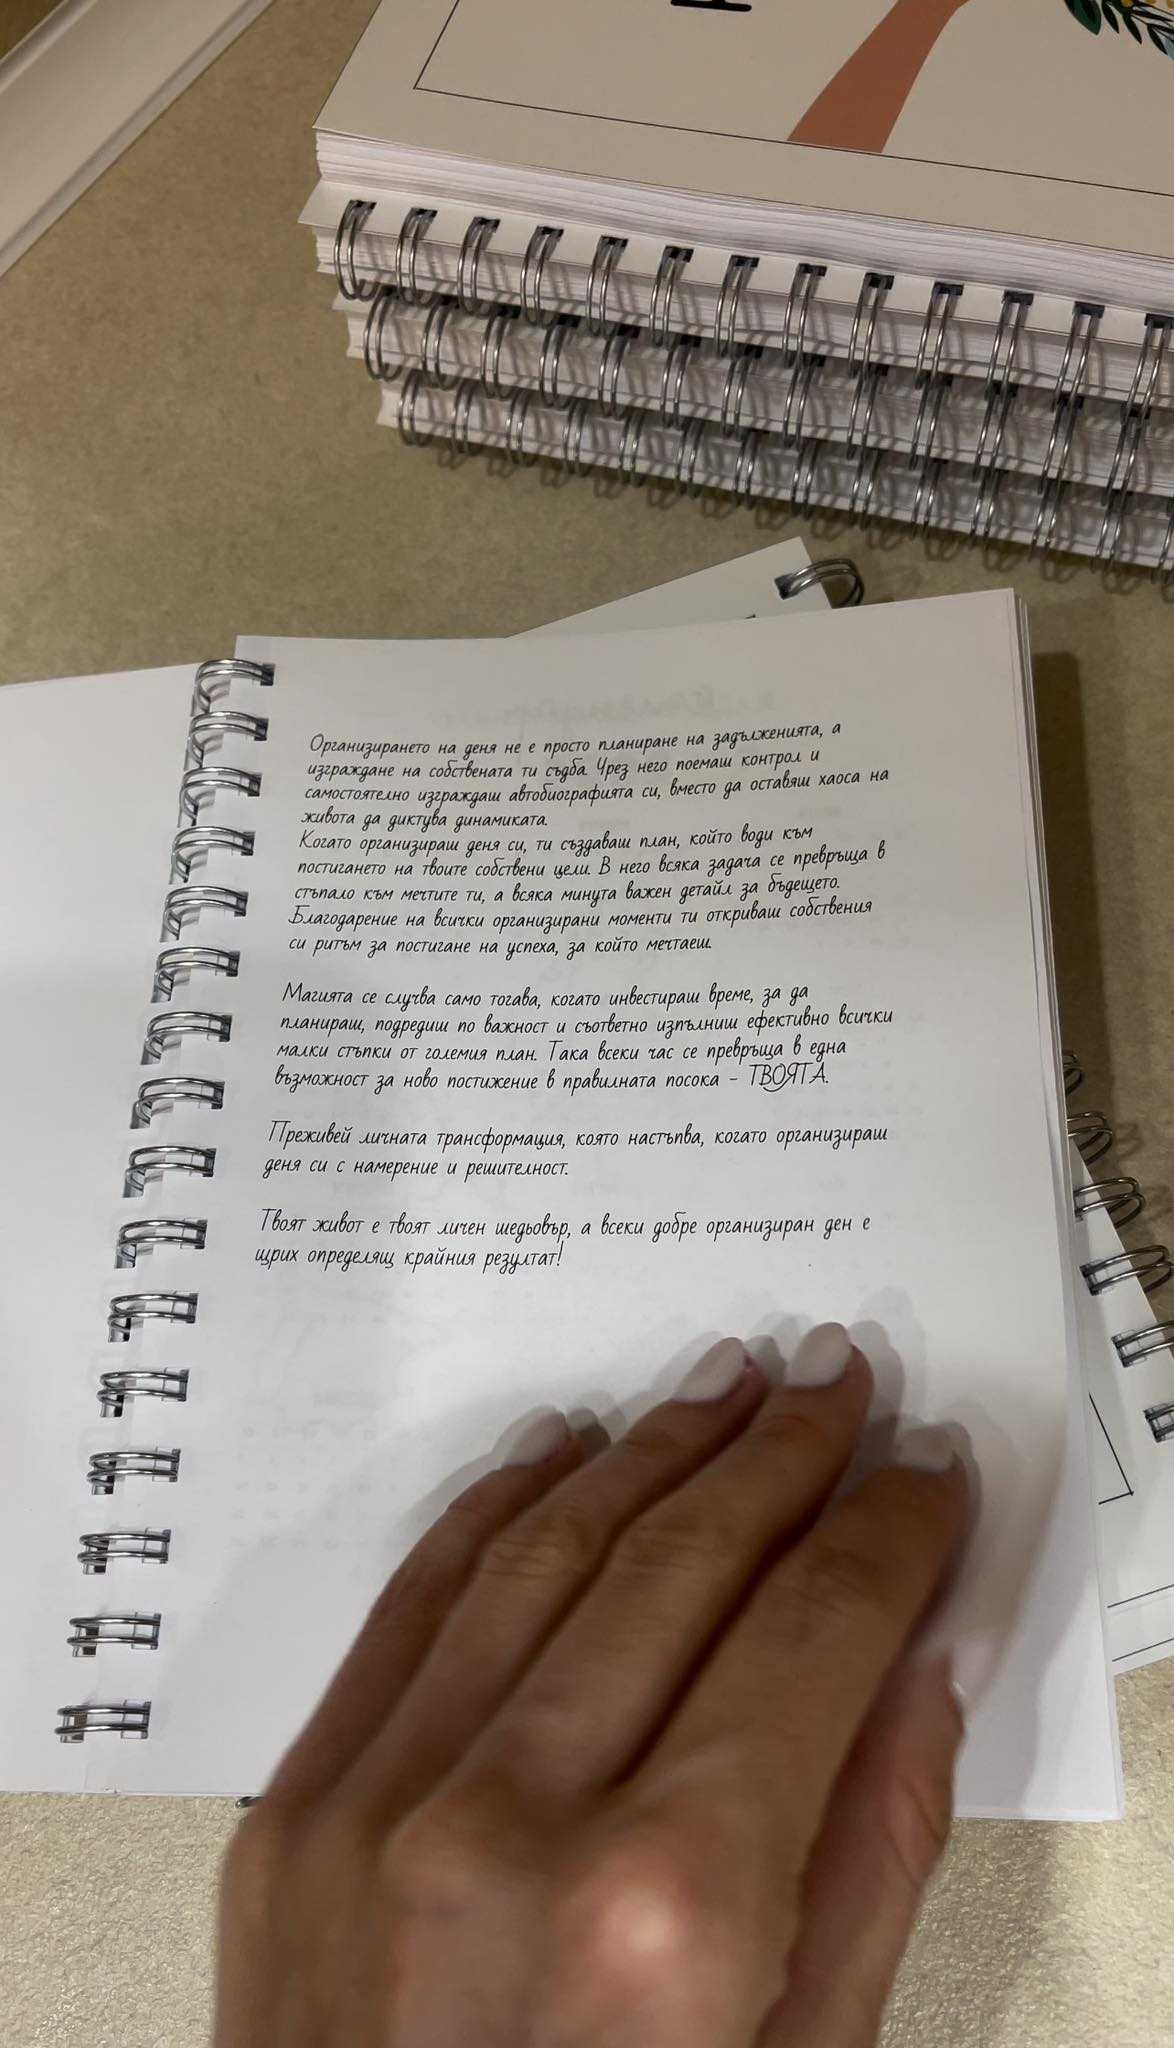 Организирането на деня не е просто планиране на задълженията, а
изграждане на собствената ти съдба. Чрез него поемаш контрол и
самостоятелно изграждаш автобиографията си, вместо да оставяш хаоса на
живота да диктува динамиката.
Когато организираш деня си, ти създаваш план, който води към
постигането на твоите собствени цели. В него всяка задача се превръща в
стъпало към мечтите ти, а всяка минута важен детайл за бъдещето.
Благодарение на всички организирани моменти ти откриваш собствения
си ритъм за постигане на успеха, за който мечтаеш.
Магията се случва само тогава, когато инвестираш време, за да
планираш, подредиш по важност и съответно изпълниш ефективно всички
малки стъпки от големия план. Така всеки час се превръща в една
възможност за ново постижение в правилната посока - ТВОЯТА.
Преживей личната трансформация, която настъпва, когато организираш
деня си с намерение и решителност.
Твоят живот е твоят личен шедьовър, а всеки добре организиран ден е
щрих определящ крайния резултат!